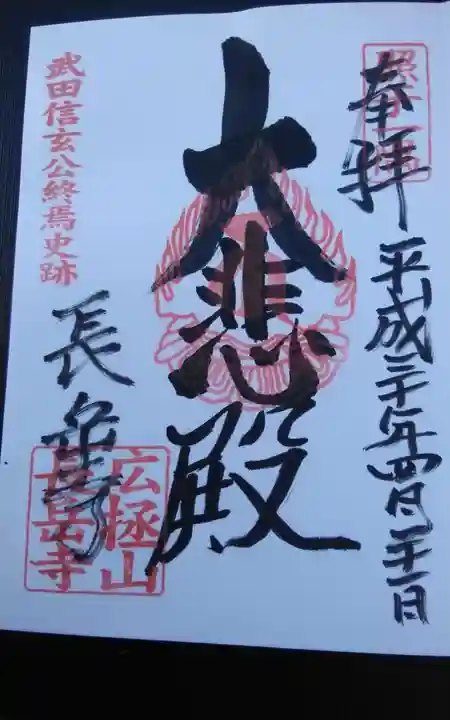 奉拝
平成三十年四月二十一日
大悲殿
武田信玄公終焉史跡
長岳寺
広極山
長岳寺